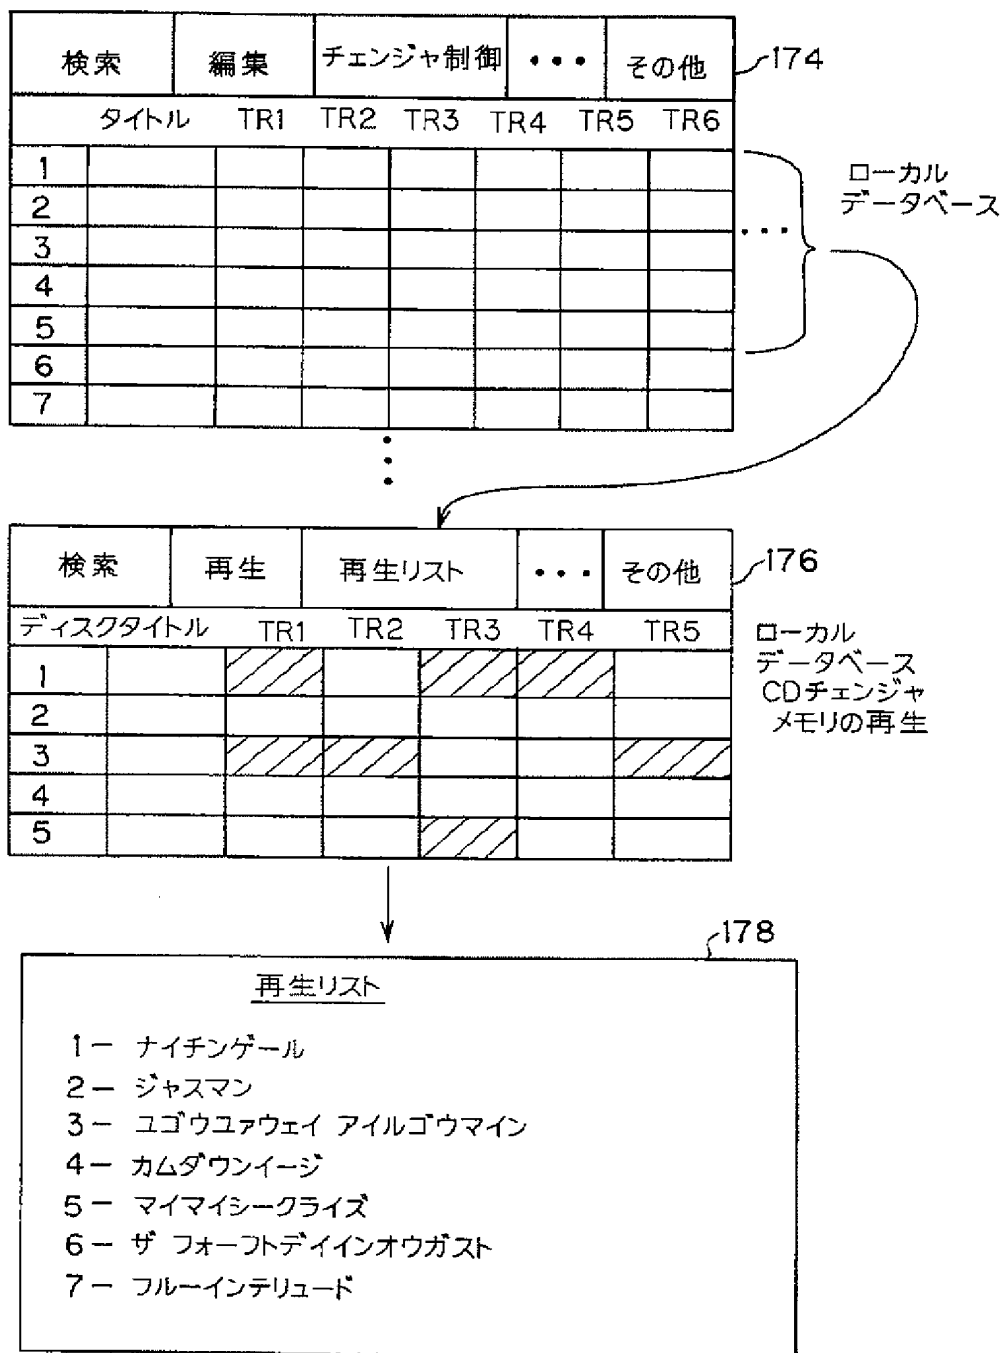 検索 編集 チェンジャ制御 ••• その他 174
タイトル TR1 TR2 TR3 TR4 TR5 TR6
1
2
3
4
5
6
7
ローカル
データベース
検索 再生 再生リスト ••• その他 176
ディスクタイトル TR1 TR2 TR3 TR4 TR5
1
2
3
4
5
ローカル
データベース
CDチェンジャ
メモリの再生
178
再生リスト
1ー ナイチンゲール
2ー ジャスマン
3ー ユゴウユァウェイ アイルゴウマイン
4ー カムダウンイージ
5ー マイマイシークライズ
6ー ザ フォーフトデイインオウガスト
7ー フルーインテリュード